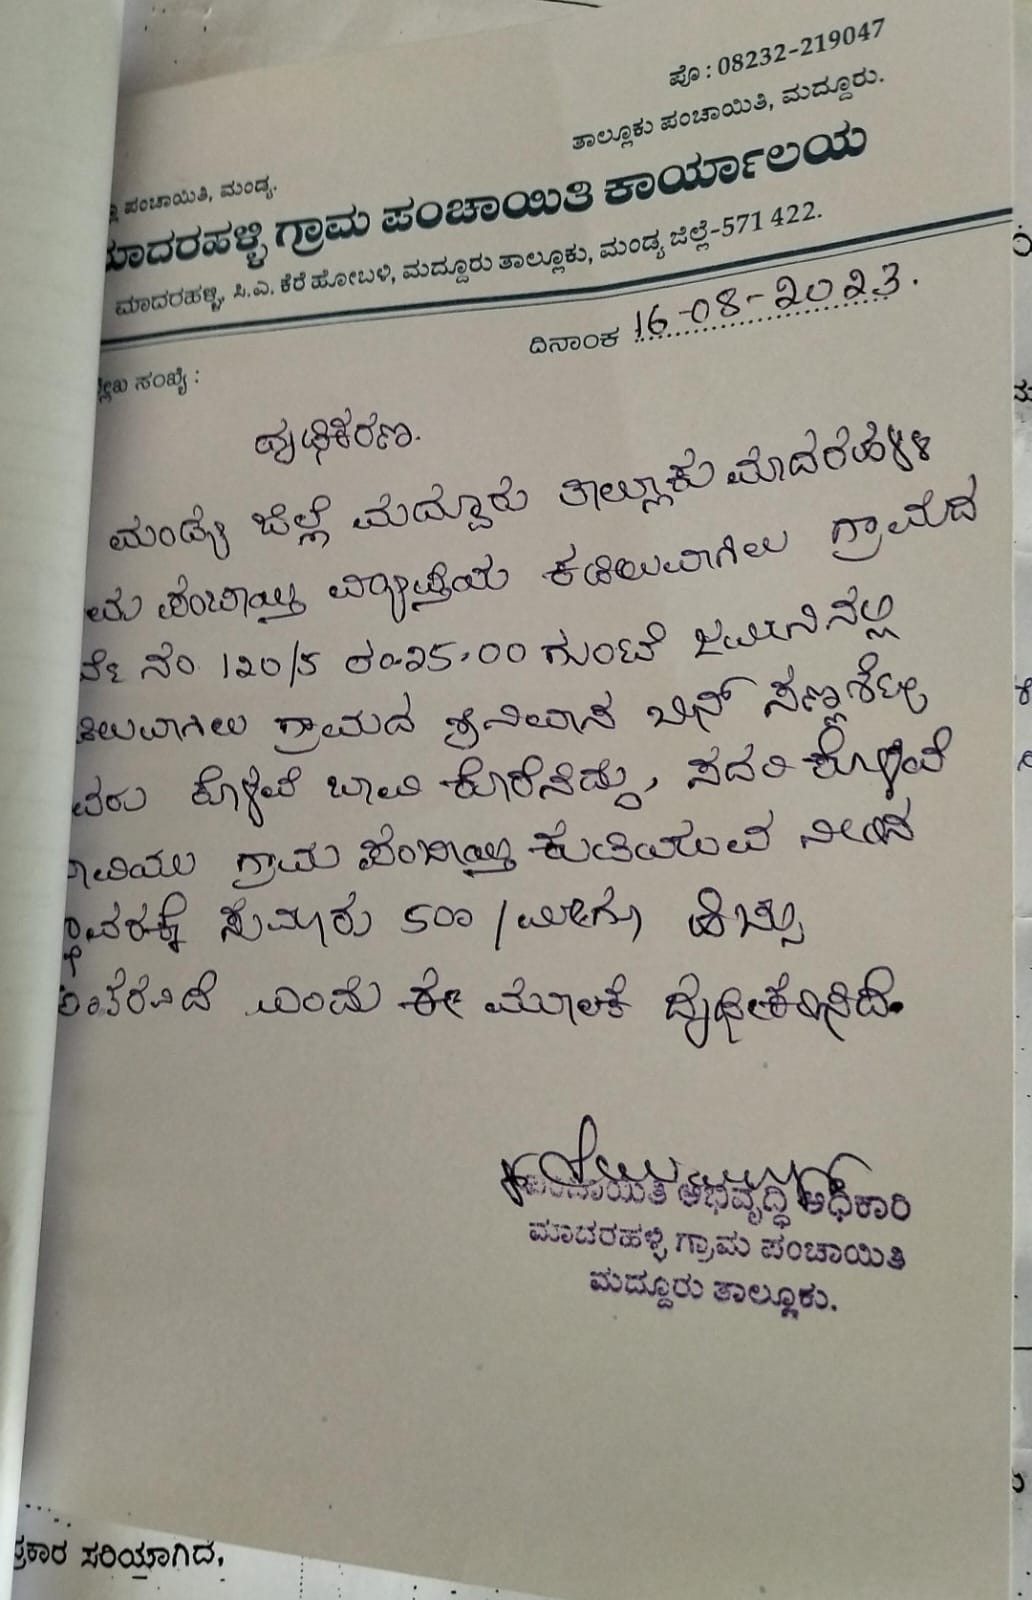 ಪೊ : 08232-219047
ಪಂಚಾಯಿತಿ, ಮಂಡ್ಯ.
ತಾಲ್ಲೂಕು ಪಂಚಾಯಿತಿ, ಮದ್ದೂರು.
ಮಾದರಹಳ್ಳಿ ಗ್ರಾಮ ಪಂಚಾಯಿತಿ ಕಾರ್ಯಾಲಯ
ಮಾದರಹಳ್ಳಿ, ಸಿ.ಎ. ಕೆರೆ ಹೋಬಳಿ, ಮದ್ದೂರು ತಾಲ್ಲೂಕು, ಮಂಡ್ಯ ಜಿಲ್ಲೆ-571 422.
ದಿನಾಂಕ 16-08-2023.
ಸಂಖ್ಯೆ :
ಧೃಢಿಕರಣ.
ಮಂಡ್ಯ ಜಿಲ್ಲೆ ಮದ್ದೂರು ತಾಲ್ಲೂಕು ಮಾದರಹಳ್ಳಿ
ಪಂಚಾಯ್ತಿ ವ್ಯಾಪ್ತಿಯ ಕಡಿಲುವಾಗಿಲು ಗ್ರಾಮದ
ನಂ 120/5 ರಂ-25.00 ಗುಂಟೆ ಜಮೀನಿನಲ್ಲಿ
ಗ್ರಾಮದ ಶ್ರೀನಿವಾಸ ಬಿನ್ ಸಣ್ಣಶೆಟ್ಟಿ
ಕೊಳವೆ ಬಾವಿ ಕೊರೆಸಿದ್ದು, ಸದರಿ ಕೊಳವೆ
ಗ್ರಾಮ ಪಂಚಾಯ್ತಿ ಕುಡಿಯುವ ನೀರಿನ
ಸುಮಾರು 500 / ಮೀಗೂ ಹೆಚ್ಚು
ಎಂದು ಈ ಮೂಲಕ ದೃಢೀಕರಿಸಿದೆ.
ಪಂಚಾಯಿತಿ ಅಭಿವೃದ್ಧಿ ಅಧಿಕಾರಿ
ಮಾದರಹಳ್ಳಿ ಗ್ರಾಮ ಪಂಚಾಯಿತಿ
ಮದ್ದೂರು ತಾಲ್ಲೂಕು.
ಪ್ರಕಾರ ಸರಿಯಾಗಿದೆ,